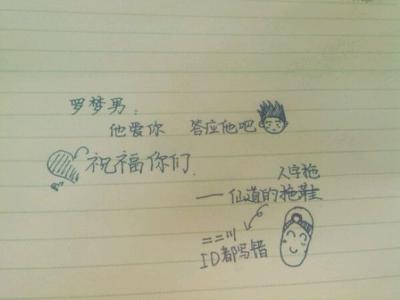 罗梦男：
他爱你 答应他吧
祝福你们
人字拖
——仙道的拖鞋
==川
ID都写错